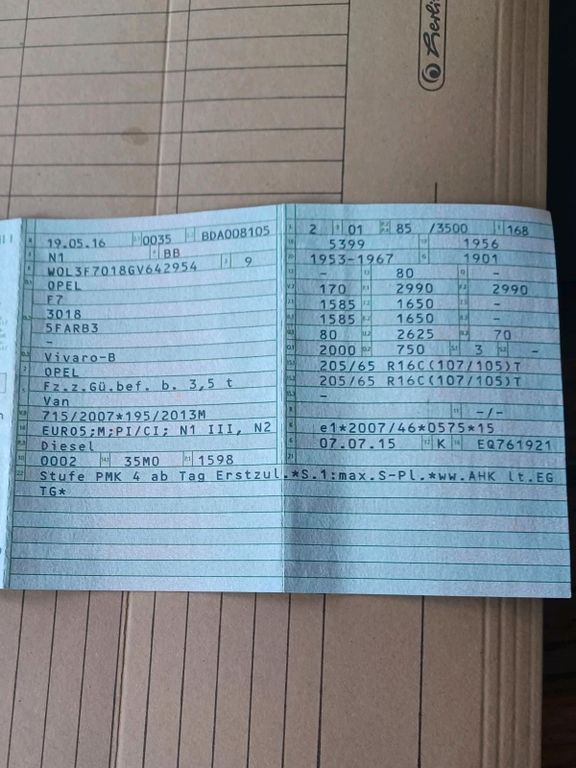 Herlitz
19.05.16 0035 BDA008105
N1 BB
WOL3F7018GV642954 9
OPEL
F7
3018
5FARB3
-
Vivaro-B
OPEL
Fz.z.Gü.bef. b. 3,5 t
Van
715/2007*195/2013M
EURO5;M;PI/CI; N1 III, N2
Diesel
0002 35M0 1598
2 01 85 /3500 168
5399 1956
1953-1967 1901
- 80 -
170 2990 2990
1585 1650 -
1585 1650 -
80 2625 70
2000 750 3 -
205/65 R16C(107/105)T
205/65 R16C(107/105)T
-
-/-
e1*2007/46*0575*15
07.07.15 K EQ761921
Stufe PMK 4 ab Tag Erstzul.*S.1:max.S-Pl.*ww.AHK lt.EG
TG*